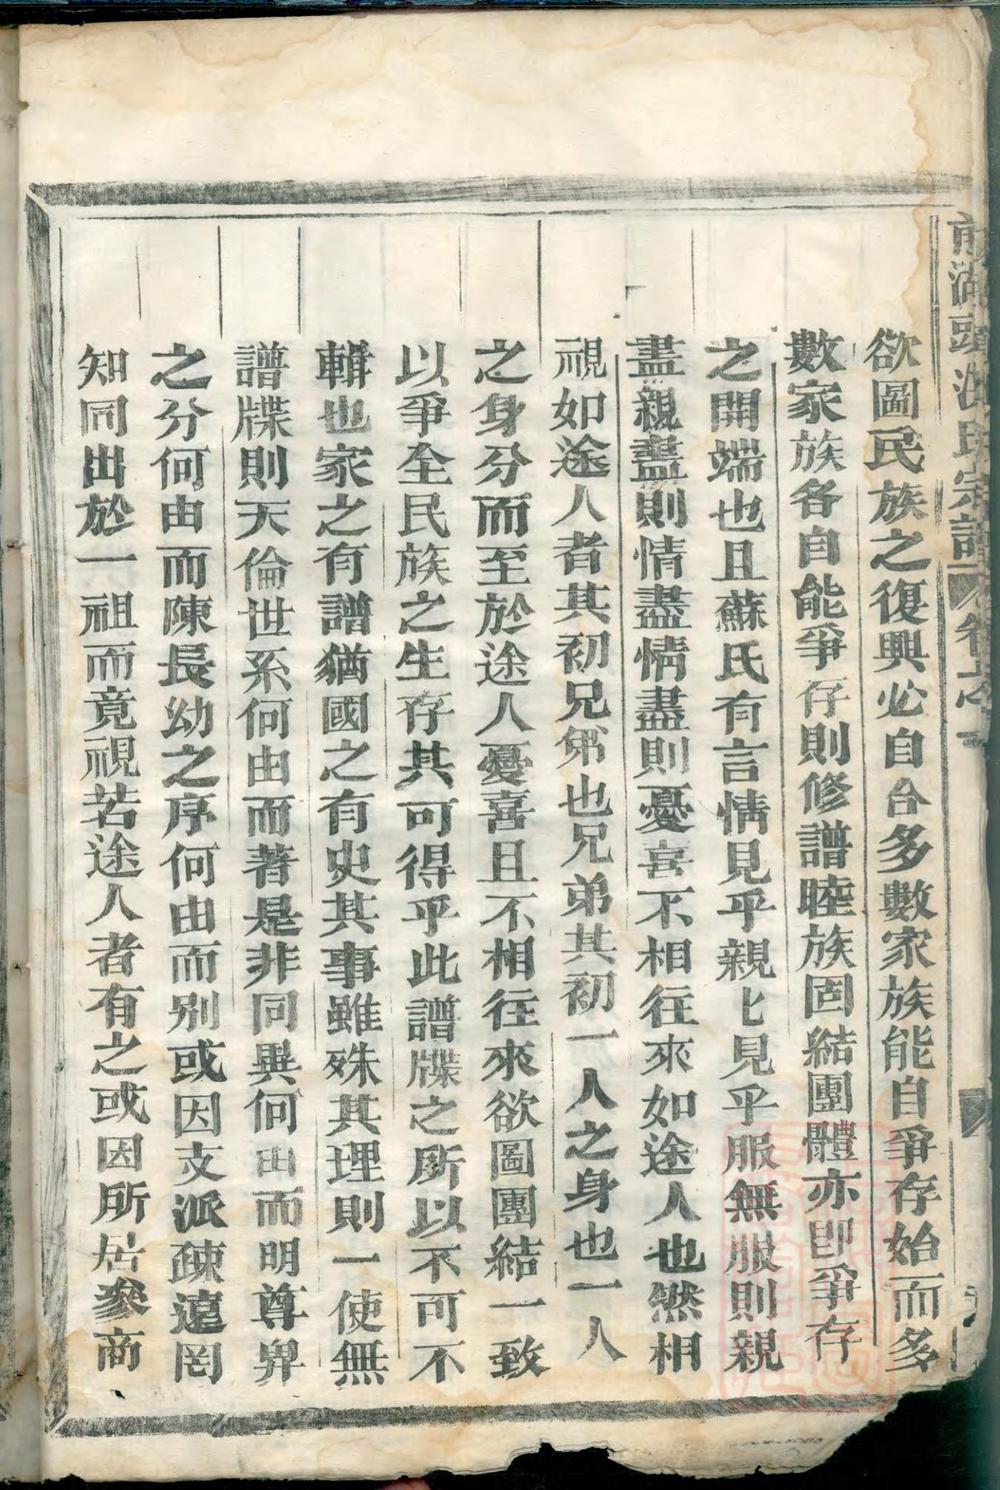 欲圖民族之復興必自合多數家族能自爭存始而多
數家族各自能爭存則修譜睦族固結團體亦卽爭存
之開端也且蘇氏有言情見乎親匕見乎服無服則親
盡親盡則情盡情盡則憂喜不相往來如途人也然相
視如途人者其初兄弟也兄弟其初一人之身也一人
之身分而至於途人憂喜且不相往來欲圖團結一致
以爭全民族之生存其可得乎此譜牒之所以不可不
輯也家之有譜猶國之有史其事雖殊其理則一使無
譜牒則天倫世系何由而著是非同異何由而明尊卑
之分何由而陳長幼之序何由而别或因支派疎遠罔
知同出於一祖而竟視若途人者有之或因所居參商